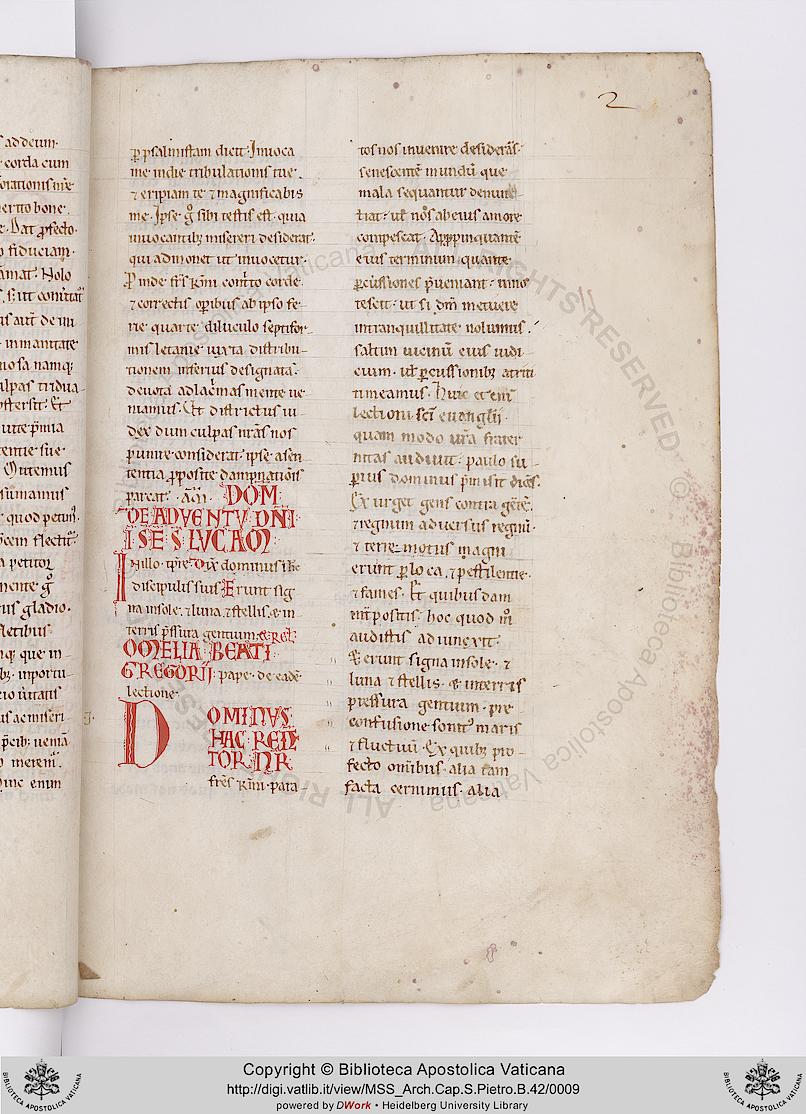 2
s ad deum·
corda cum
orationis nr̄e
erito bone
Dat ꝓfecto·
fiduciam·
Nolo
is aut̄ de im
inmanitate
uosa namq;
ulpas tridua
Et
entie sue
Oꞇtemus
sumamus
quod petim᷒·
flectit᷒·
a petitoꝝ
gladio·
fletibus
que in
inportu
eniḿ
hinc enim
ꝑ psalmistam dicit· Inuoca
me indie tribulationis tue
⁊ eripiam te ⁊ magnificabis
me· Ipse gͦ sibi testis est quia
inuocantib; misereri desiderat·
qui admonet ut inuocetur·
Ꝓ inde fr̄s kr̄mi contrito corde·
⁊ correctis oꝑibus ab ipso fe-
rie quarte diluculo septifor-
mis letanie iuxta distribu-
tionem inferius designatā·
deuota ad lacrimas mente ue
niamus· Et districtus iu-
dex dum culpas nr̄as nos
punire considerat· ipse a sen
tentia ꝓposite dampnationis
parcat· am̄· DOM̄
DE ADVENTV DN̄I·
I. SE S. LVCAM
In illo tp̄re· Dix̄ dominus ih̄c
discipulis suis· Erunt sig
na in sole· ⁊ luna· ⁊ stellis· ⁊ in
terris p̄ssura gentium· ⁊ rel̄·
OMELIA BEATI
GREGORII pape· de eadē
lectione·
DOMINVS
HAC REDE
TOR NR̄
fr̄es kr̄mi· para-
tos nos inuenire desiderās·
senescentē mundū que
mala sequantur denun-
tiat· ut nos ab eius amore
compescat· Appropinquantē
eius terminum quante
ꝑcussiones p̄ueniant· inno
tescit· ut si dm̄ metuere
intranquillitate nolumus·
saltim uicinū eius iudi
cium· ut ꝑcussionib; attriti
timeamus· Huic etenī
lectioni sc̄i euangłii·
quam modo ur̄a frater
nitas audiuit· paulo su-
ꝑius dominus p̄misit dicēs·
Ex urget gens contra gētē·
⁊ regnum aduersus regnū·
⁊ terre motus magni
erunt ꝑ loca· ⁊ pestilentie·
⁊ fames· Et quibusdam
int̄ positis· hoc quod m̊
audistis adiunxit·
⁊ erunt signa in sole· ⁊
luna ⁊ stellis· ⁊ in terris
pressura gentium· pre
confusione sonit᷒ maris
⁊ fluctuū· Ex quib; pro
fecto omīibus· alia iam
facta cernimus· alia
ALL RIGHTS RESERVED
© Biblioteca Apostolica Vaticana
Copyright © Biblioteca Apostolica Vaticana
http://digi.vatlib.it/view/MSS_Arch.Cap.S.Pietro.B.42/0009
powered by DWork • Heidelberg University Library
BIBLIOTECA APOSTOLICA VATICANA
BIBLIOTECA APOSTOLICA VATICANA